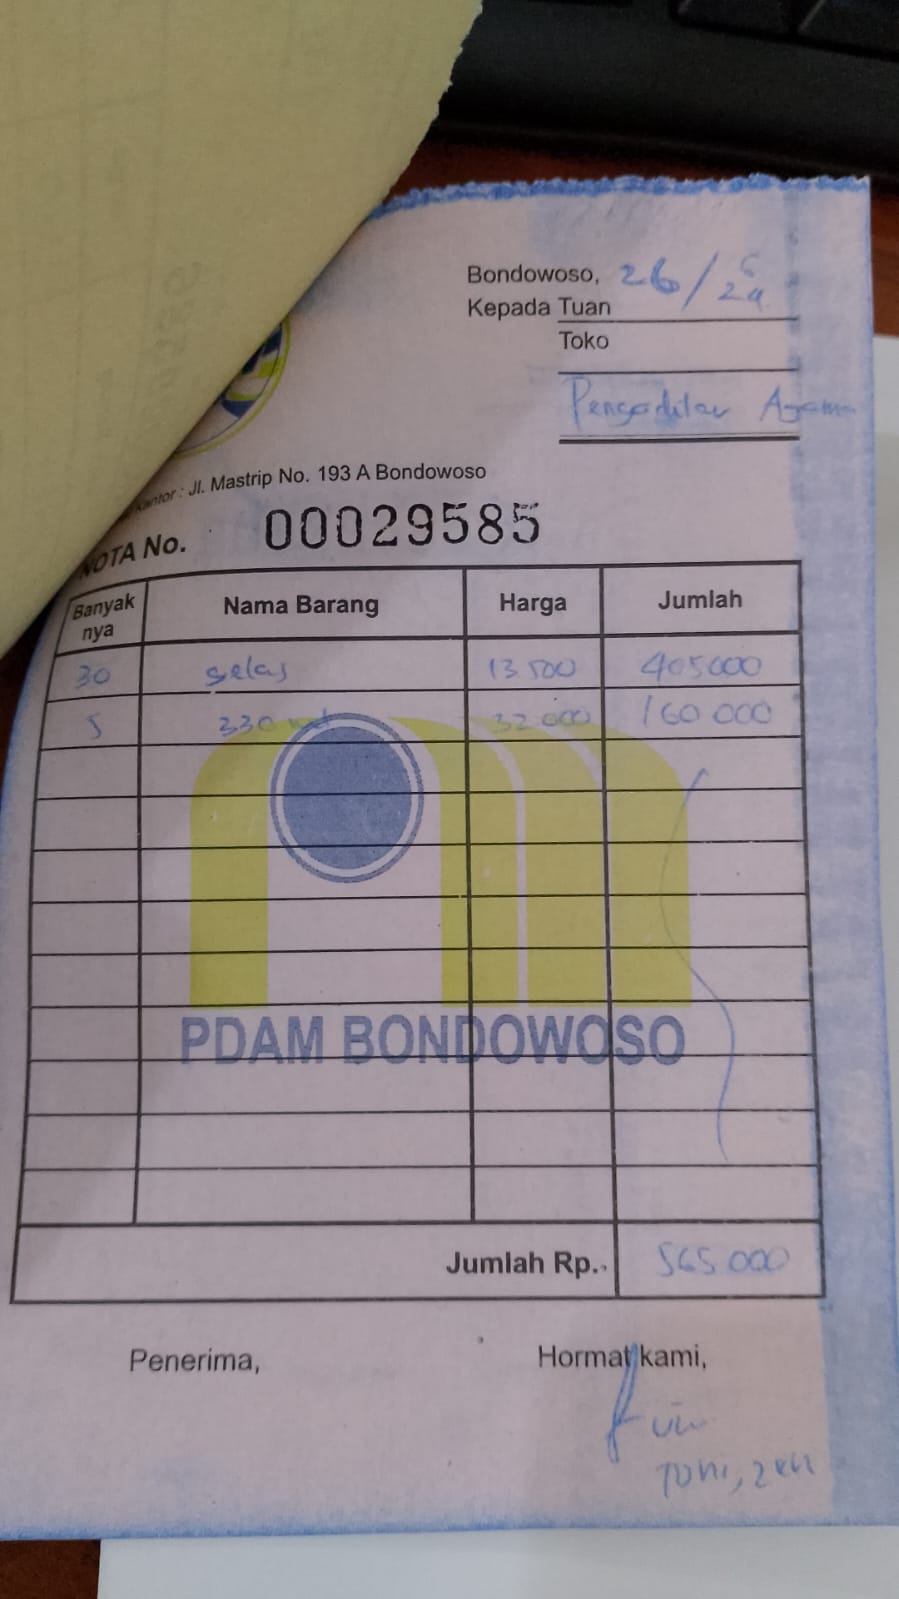 Bondowoso, 26/6 24
Kepada Tuan
Toko
Pengadilan Agama
Kantor : Jl. Mastrip No. 193 A Bondowoso
NOTA No. 00029585
Banyak nya Nama Barang Harga Jumlah
30 gelas 13.500 405000
5 330 ml 32.000 160 000
PDAM BONDOWOSO
Jumlah Rp. 565.000
Penerima, Hormat kami,
Toni,